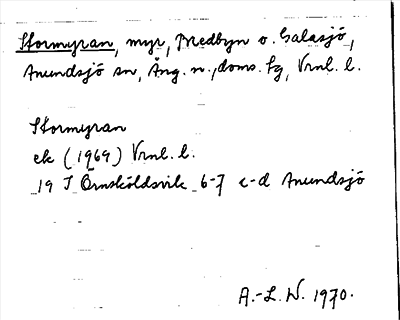 Stormyran, myr, Bredbyn o. Galasjö,
Anundsjö sn, Ång. n., doms. sg, Vrnl. l.
Stormyran
ek (1969) Vrnl. l.
19 J Örnsköldsvik 6-7 c-d Anundsjö
A.-L. W. 1970.